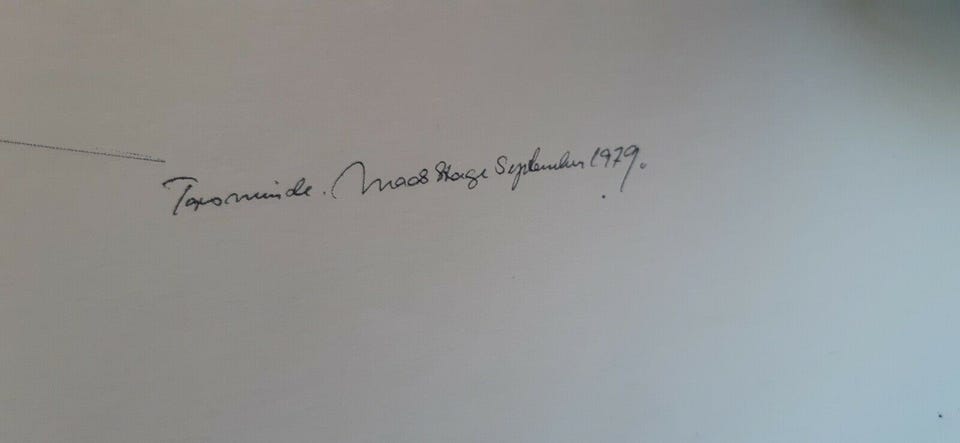 Torsminde. Mads Stage September 1979.